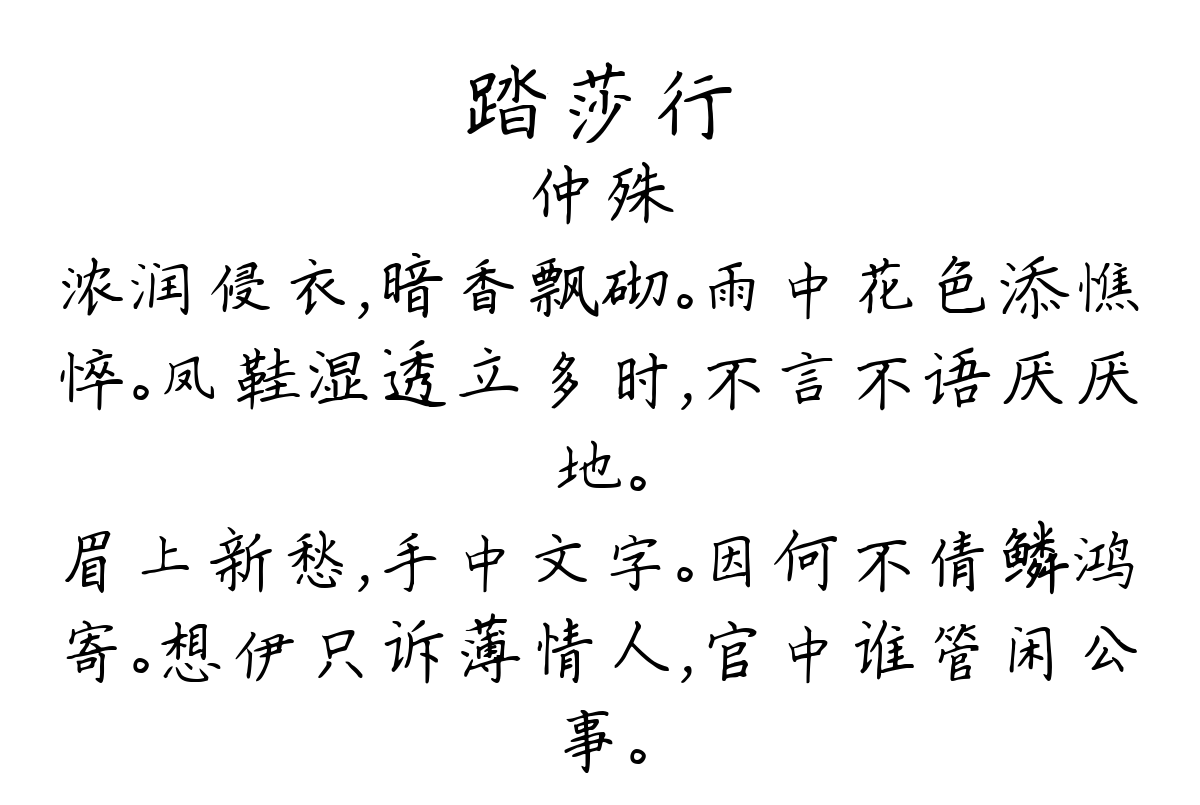 踏莎行
仲殊
浓润侵衣,暗香飘砌。雨中花色添憔
悴。凤鞋湿透立多时,不言不语厌厌
地。
眉上新愁,手中文字。因何不倩鳞鸿
寄。想伊只诉薄情人,官中谁管闲公
事。